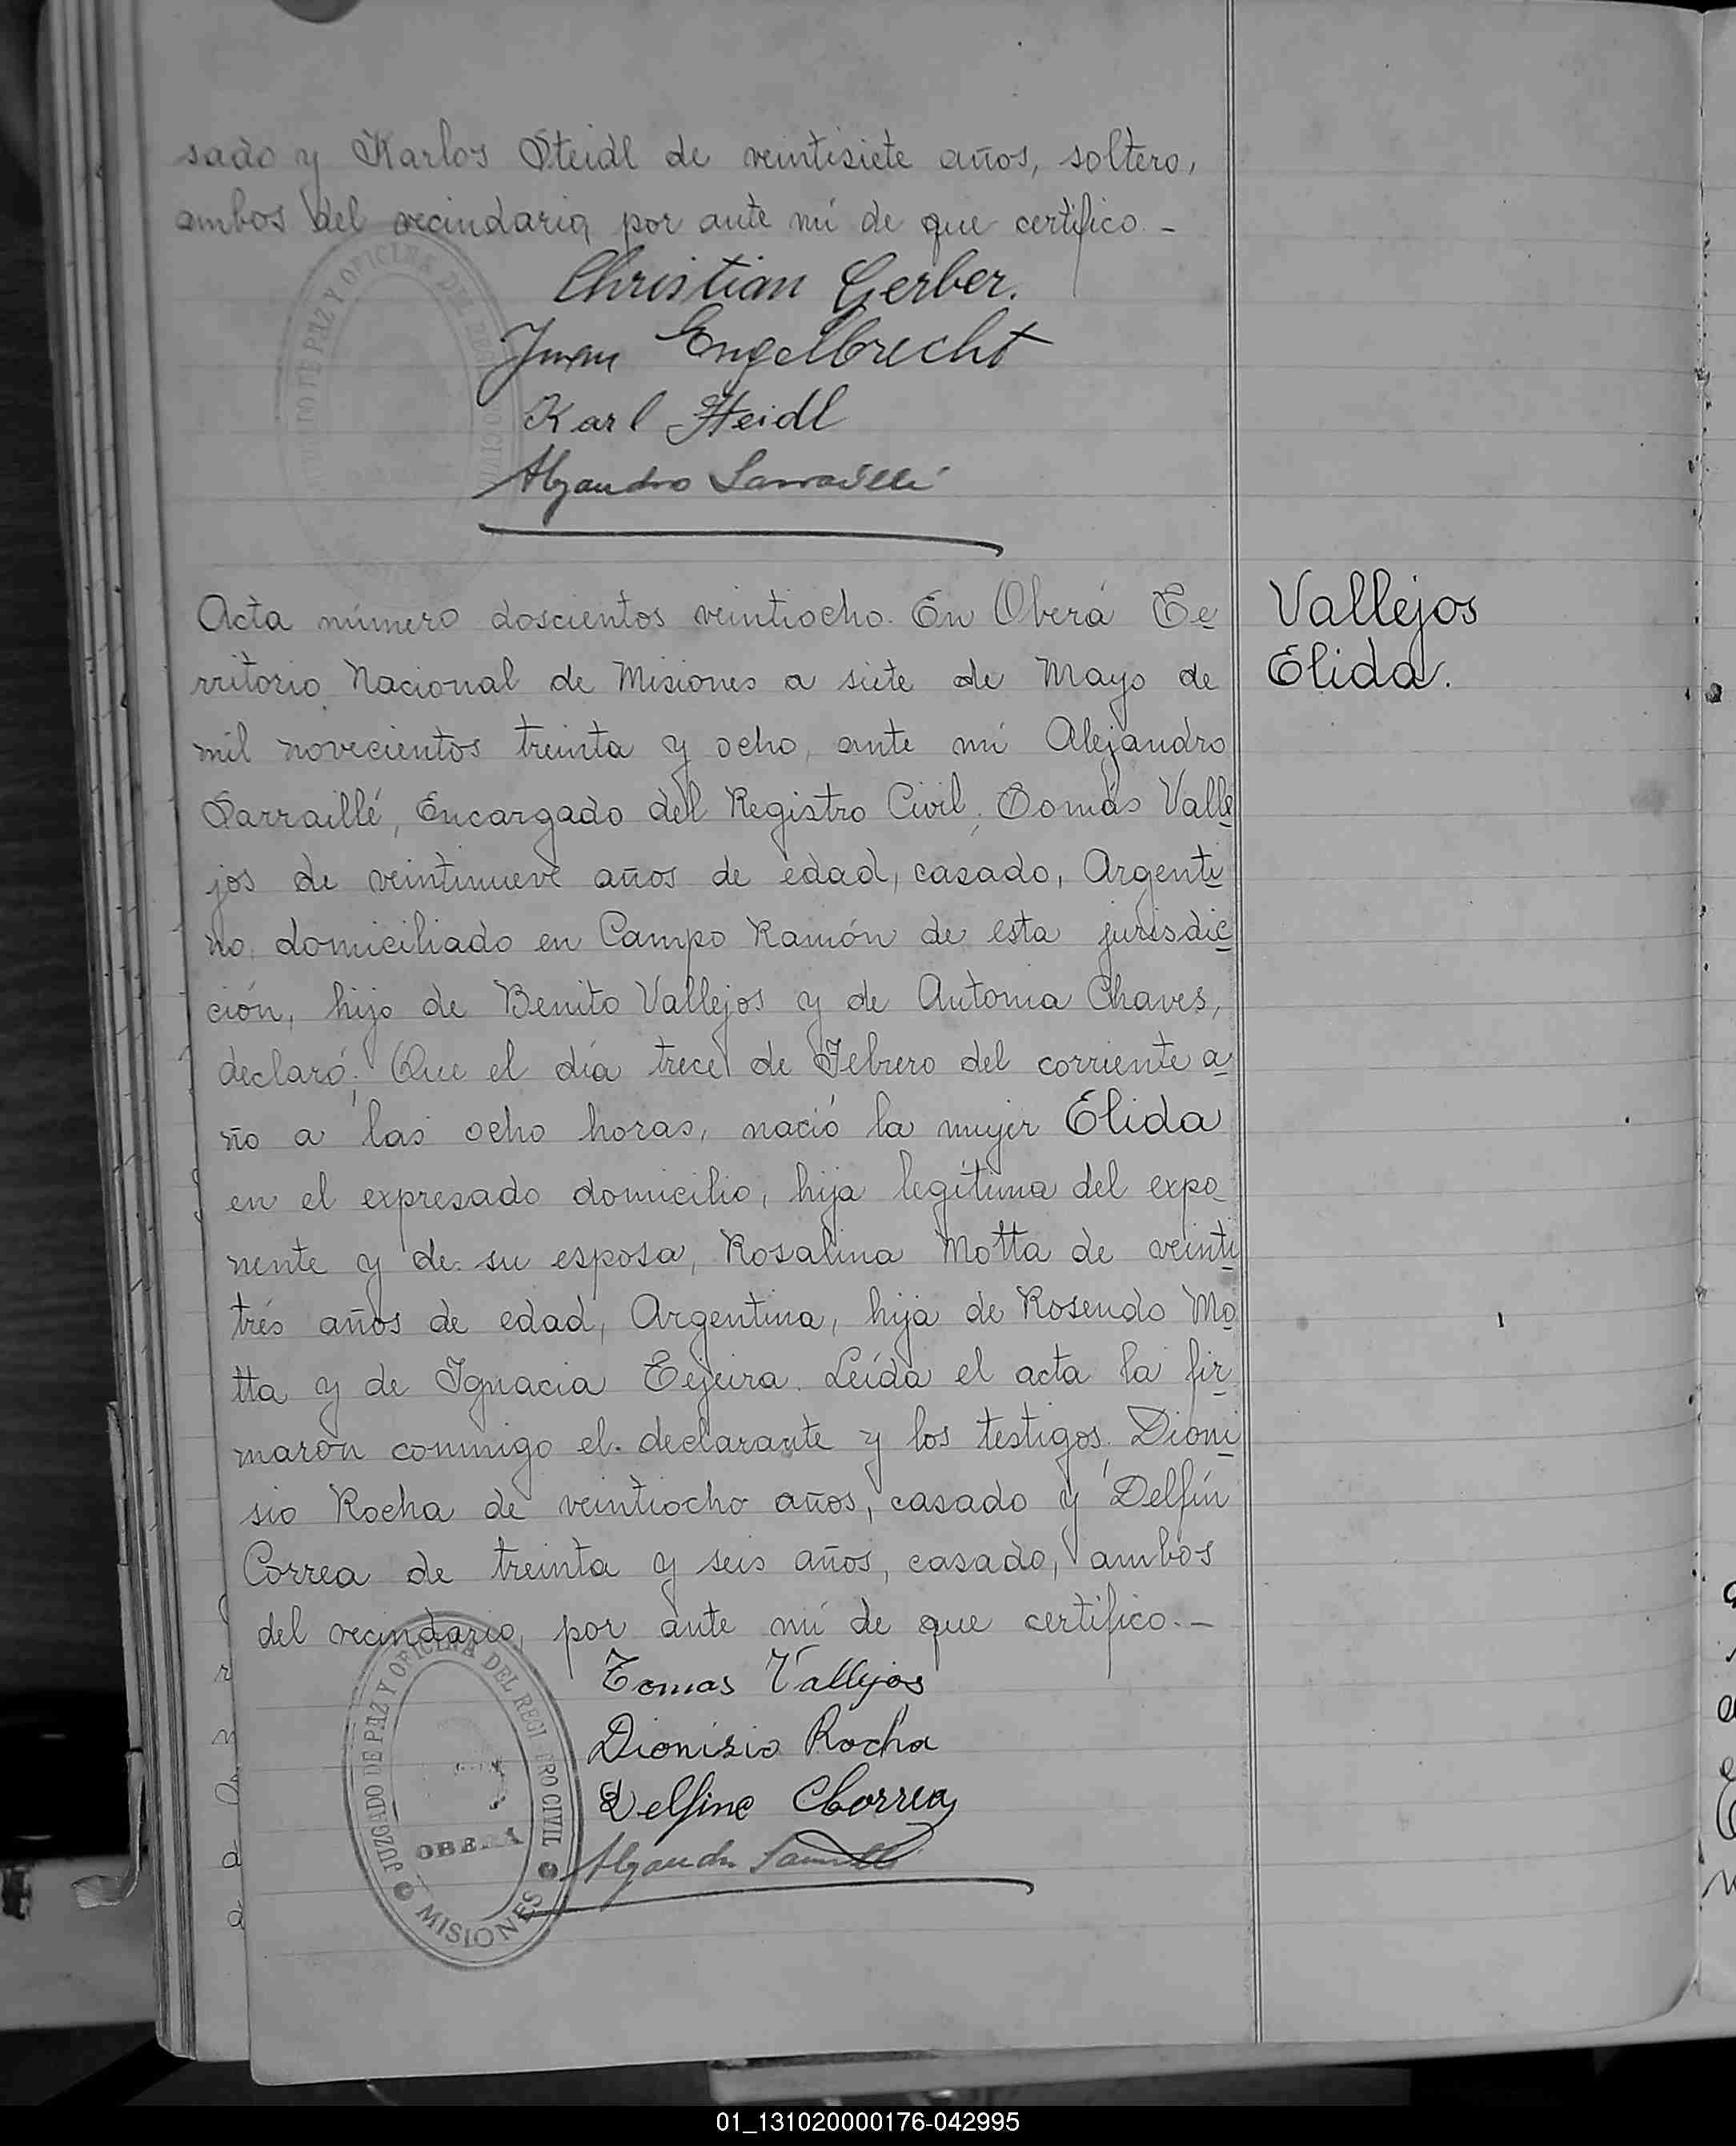 sado y Karlos Steidl de veintisiete años, soltero,
ambos del vecindario, por ante mí de que certifico. -
Christian Gerber.
Juan Engelbrecht
Karl Steidl
Alejandro Sarraillé
Acta número doscientos veintiocho. En Oberá Te
rritorio Nacional de Misiones a siete de Mayo de
mil novecientos treinta y ocho, ante mí Alejandro
Sarraillé, Encargado del Registro Civil; Tomás Valle
jos de veintinueve años de edad, casado, Argenti
no, domiciliado en Campo Ramón de esta jurisdic
ción, hijo de Benito Vallejos y de Antonia Chaves,
declaró; Que el día trece de Febrero del corriente a
ño a las ocho horas, nació la mujer Elida
en el expresado domicilio, hija legítima del expo
nente y de su esposa, Rosalina Motta de veinti
trés años de edad, Argentina, hija de Rosendo Mo
tta y de Ignacia Tejeira. Leída el acta la fir
maron conmigo el declarante y los testigos, Dioni
sio Rocha de veintiocho años, casado y Delfín
Correa de treinta y seis años, casado, ambos
del vecindario, por ante mí de que certifico. -
Tomas Vallejos
Dionisio Rocha
Delfino Correa
Alejandro Sarraillé
Vallejos
Elida.
JUZGADO DE PAZ Y OFICINA DEL REGI TRO CIVIL
OBERA
MISIONES
01_131020000176-042995